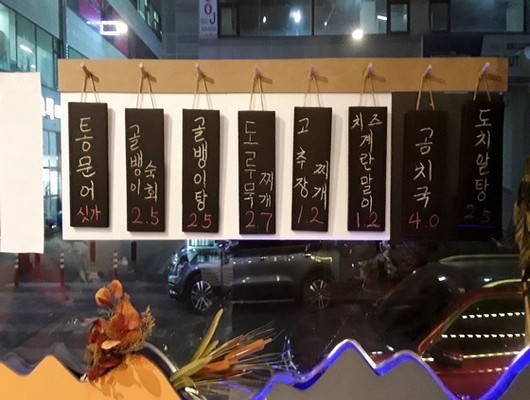 통문어
싯가
골뱅이
숙회
2.5
골뱅이탕
25
도루묵
찌개
27
고추장
찌개
12
치즈
계란말이
12
곰치국
4.0
도치알탕
2.5